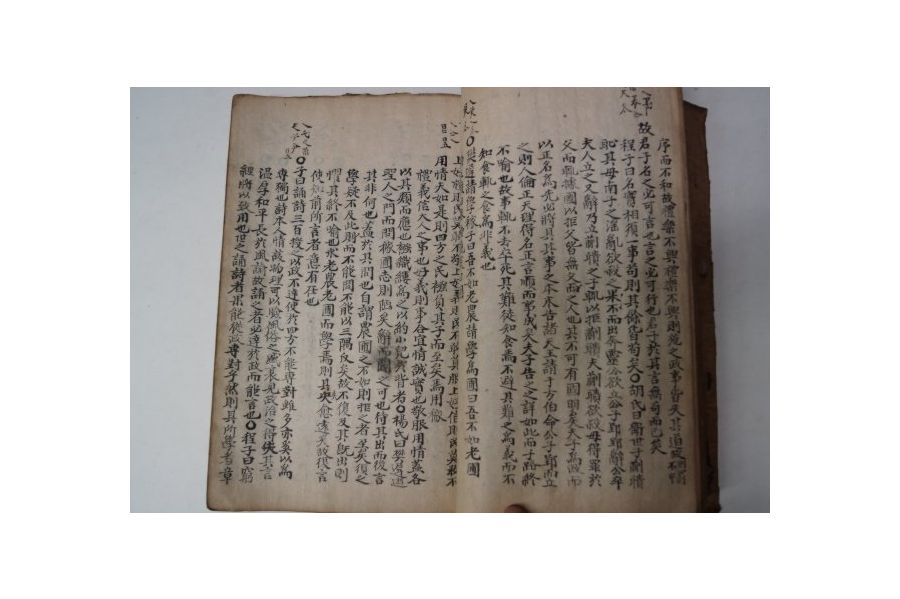 序而不和故禮樂不興禮樂不興則施之政事皆失其道故刑罰不中
故君子名之必可言也言之必可行也君子於其言無所苟而已矣
程子曰名實相須一事苟則其餘皆苟矣○胡氏曰衛世子蒯聵
恥其母南子之淫亂欲殺之不果而出奔靈公欲立公子郢郢辭公卒
夫人立之又辭乃立蒯聵之子輒以拒蒯聵夫蒯聵欲殺母得罪於
父而輒據國以拒父皆無父之人也其不可有國明矣夫子為政而
以正名為先必將具其事之本末告諸天王請于方伯命公子郢而立
之則人倫正天理得名正言順而事成矣夫子告之之詳如此而子路終
不喻也故事輒不去卒死其難徒知食焉不避其難之為義而不
知食輒之食為非義也
○樊遲請學稼子曰吾不如老農請學為圃曰吾不如老圃
上好禮則民莫敢不敬上好義則民莫敢不服上好信則民莫敢不
用情夫如是則四方之民襁負其子而至矣焉用稼
禮義信大人之事也好義則事合宜情誠實也敬服用情蓋各
以其類而應也襁織縷為之以約小兒於背者○楊氏曰樊遲遊
聖人之門而問稼圃志則陋矣辭而闢之可也待其出而後言
其非何也蓋於其問也自謂農圃之不如則拒之者至矣須之
學疑不及此而不能問不能以三隅反矣故不復及其既出則
懼其終不喻也求老農老圃而學焉則其失愈遠矣故復言
使知前所言者意有在也
○子曰誦詩三百授之以政不達使於四方不能專對雖多亦奚以為
專獨也詩本人情該物理可以驗風俗之盛衰見政治之得失其言
溫厚和平長於風諭故誦之者必達於政而能言也○程子曰窮
經將以致用也世之誦詩者果能從政專對乎然則其所學者章